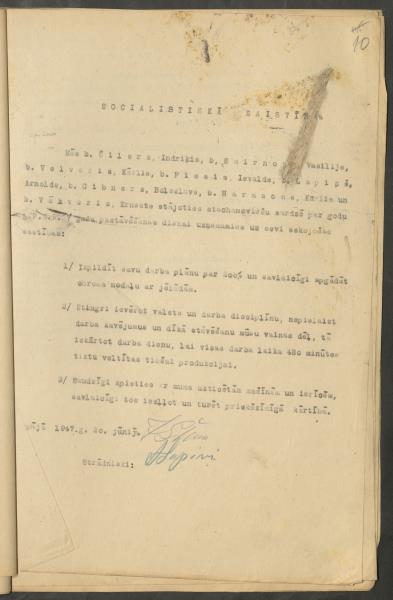 10
SOCIALISTISKĀ SAISTĪBA
Mēs b. Šilers, Indriķis, b. Smirnovs, Vasilijs,
b. Volveris, Kārlis, b. Piesis, Ievalds, b. Lapiņš,
Arnolds, b. Cibners, Boleslavs, b. Karasons, Kārlis un
b. Vēveris, Ernests stājoties stachanoviešu sardzē par godu
gadu pastāvēšanas dienai uzņemamies uz sevi sekojošas
saistības:
1/ Izpildīt savu darba plānu par 300% un savlaicīgi apgādāt
ādām.
2/ Stingri ievērot valsts un darba disciplīnu, nepielaist
darba kavējumus un dīkā stāvēšanu mūsu vainas dēļ, tā
iekārtot darba dienu, lai visas darba laika 480 minūtes
tiktu veltītas tikai produkcijai.
3/ Saudzīgi apieties ar mums uzticētām mašīnām un ierīcēm,
savlaicīgi tos ieeļļot un turēt priekšzīmīgā kārtībā.
Rīgā 1947.g. 20. jūnijā.
Strādnieki: